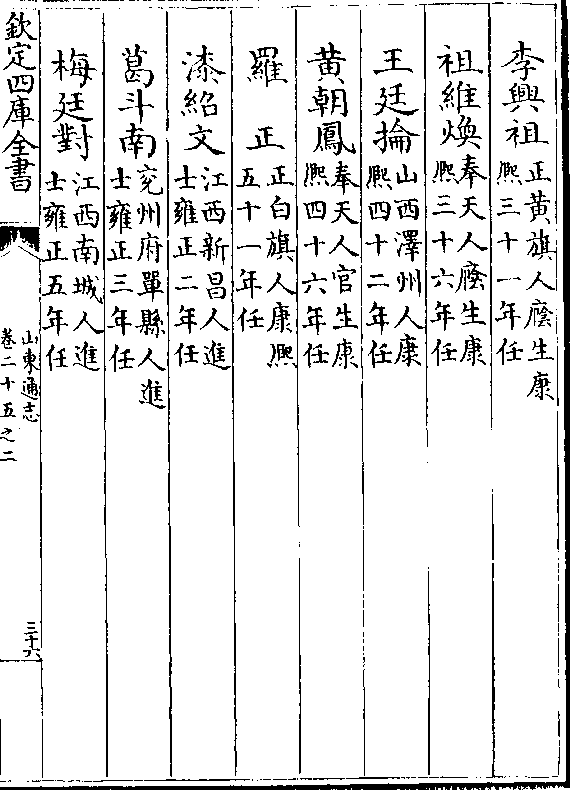 李興祖正黃旗人廕生康
熙三十一年任
祖維煥奉天人廕生康
熙三十六年任
王廷掄山西澤州人康
熙四十二年任
黃朝鳳奉天人官生康
熙四十六年任
羅　正正白旗人康熙
五十一年任
漆紹文江西新昌人進
士雍正二年任
葛斗南兗州府單縣人進
士雍正三年任
梅廷對江西南城人進
士雍正五年任
欽定四庫全書
山東通志
卷二十五之二
三十六